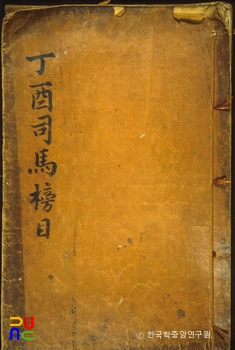 丁酉司馬榜目
© 한국학중앙연구원